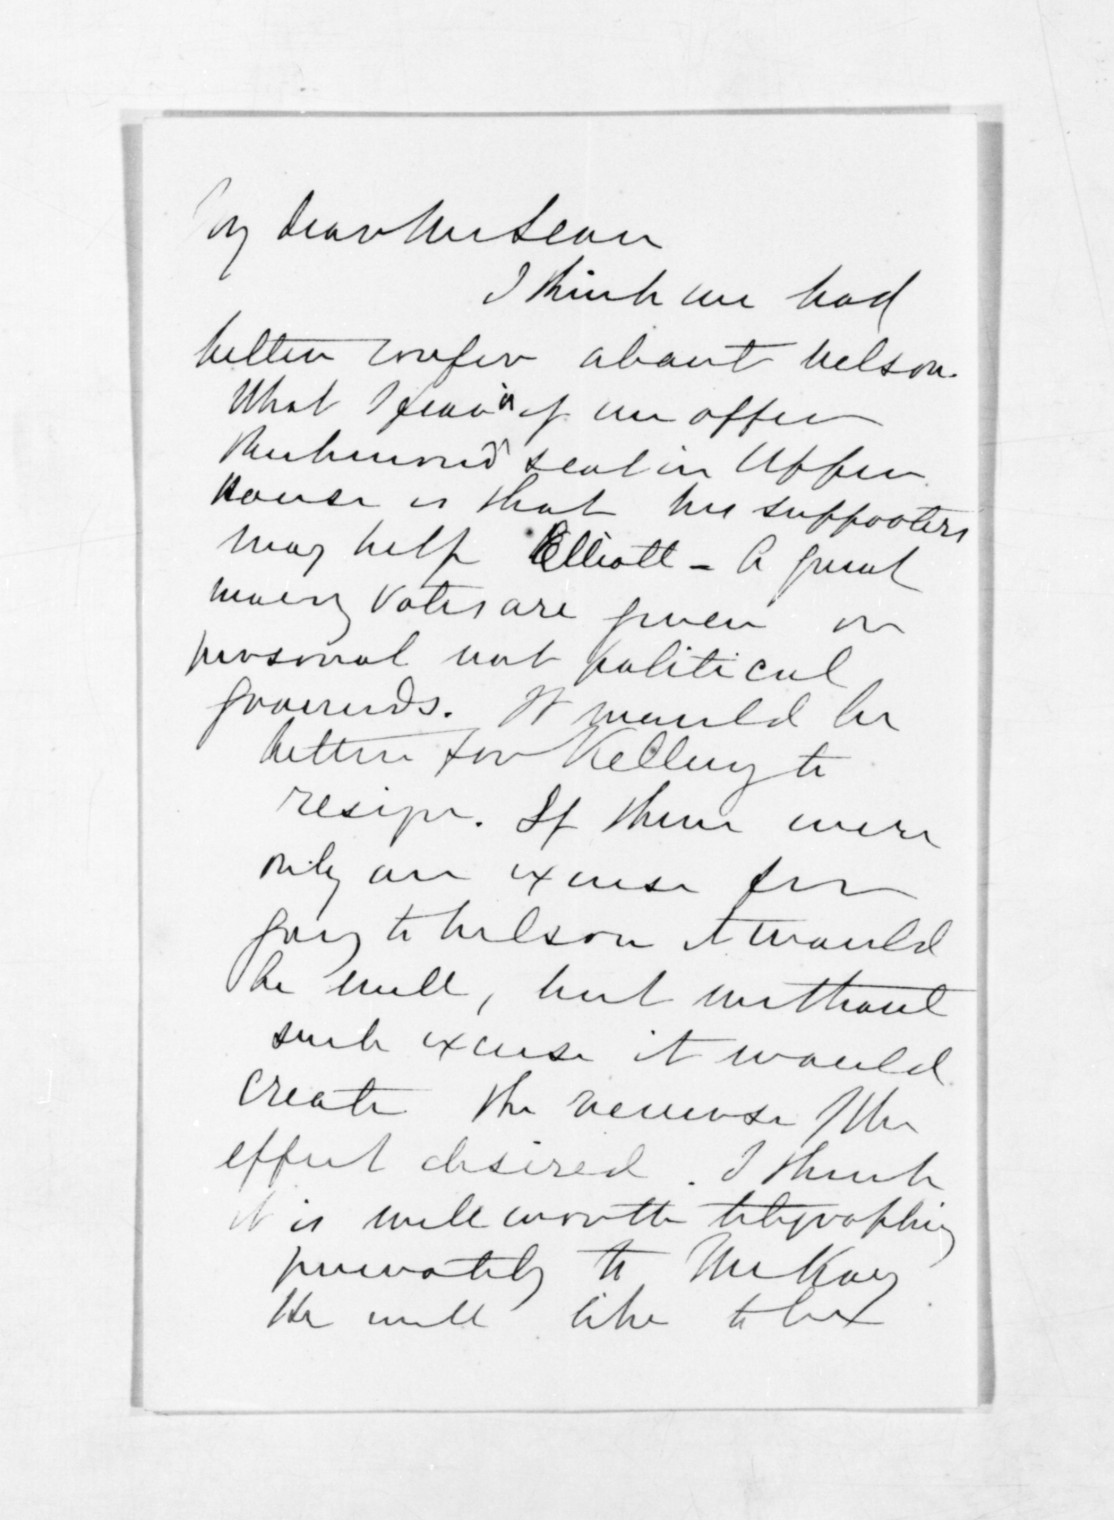 My dear McLean
I think we had
better confer about Nelson.
What I fear is if we offer
Richmond seat in Upper
House is that his supporters
may help Elliott - A great
many votes are given on
personal not political
grounds. It would be
better for Kelling to
resign. If there were
only an excuse for
going to Nelson it would
be well, but without
such excuse it would
create the reverse of the
effect desired. I think
it is well worth telegraphing
privately to McKay
He will like to be